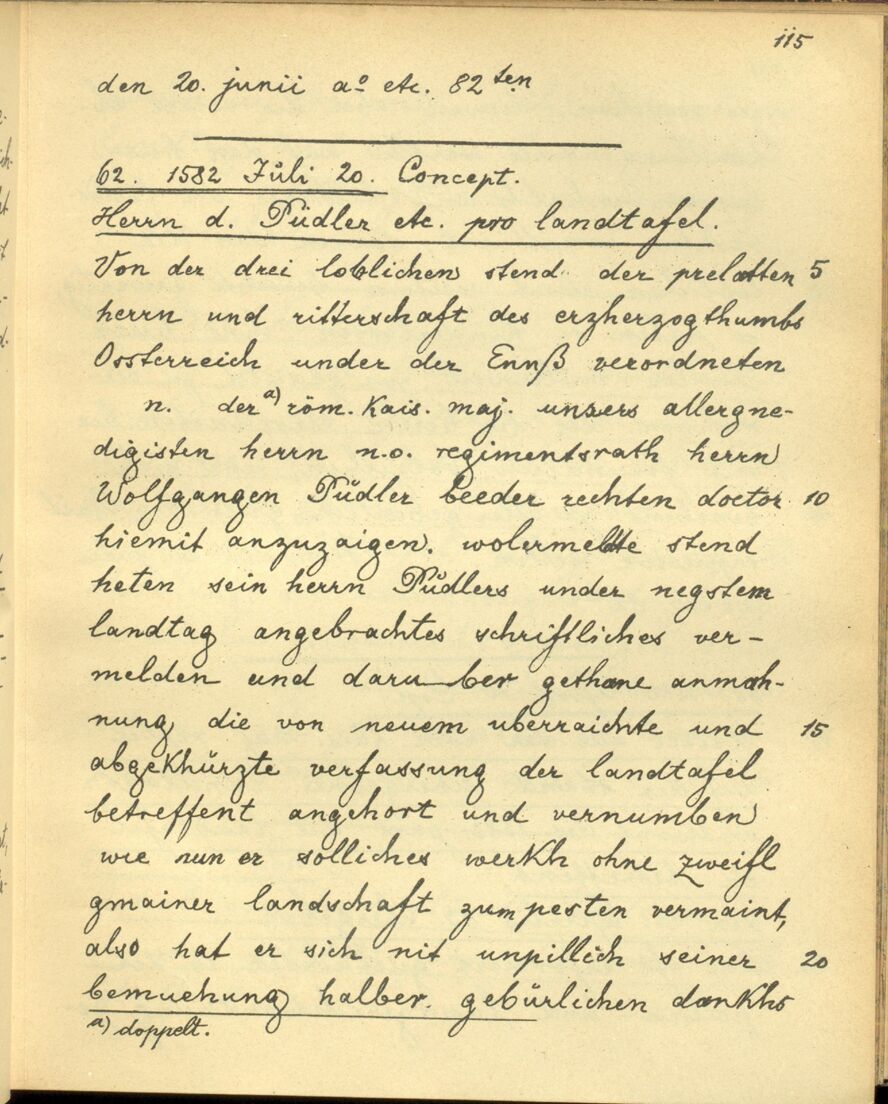 115
den 20. junii aº etc. 82ten
62. 1582 Jŭli 20. Concept.
Herrn d. Püdler etc. pro landtafel.
Von der drei loblichen stend der prelatten 5
herrn und ritterschaft des erzherzogthumbs
Ossterreich under der Ennß verordneten
n. der a) röm. Kais. maj. unsers allergne-
digisten herrn n.o. regimentsrath herrn
Wolfgangen Püdler beeder rechten doctor 10
hiemit anzuzaigen. wolermeldte stend
heten sein herrn Püdlers under negstem
landtag angebrachtes schriftliches ver-
melden und daruber gethane anmah-
nung die von neuem uberraichte und 15
abgekhürzte verfassung der landtafel
betreffent angehort und vernumben
wie nun er solliches werkh ohne zweifl
gmainer landschaft zum pesten vermaint,
also hat er sich nit unpillich seiner 20
bemuehung halber gebürlichen dankhs
a) doppelt.